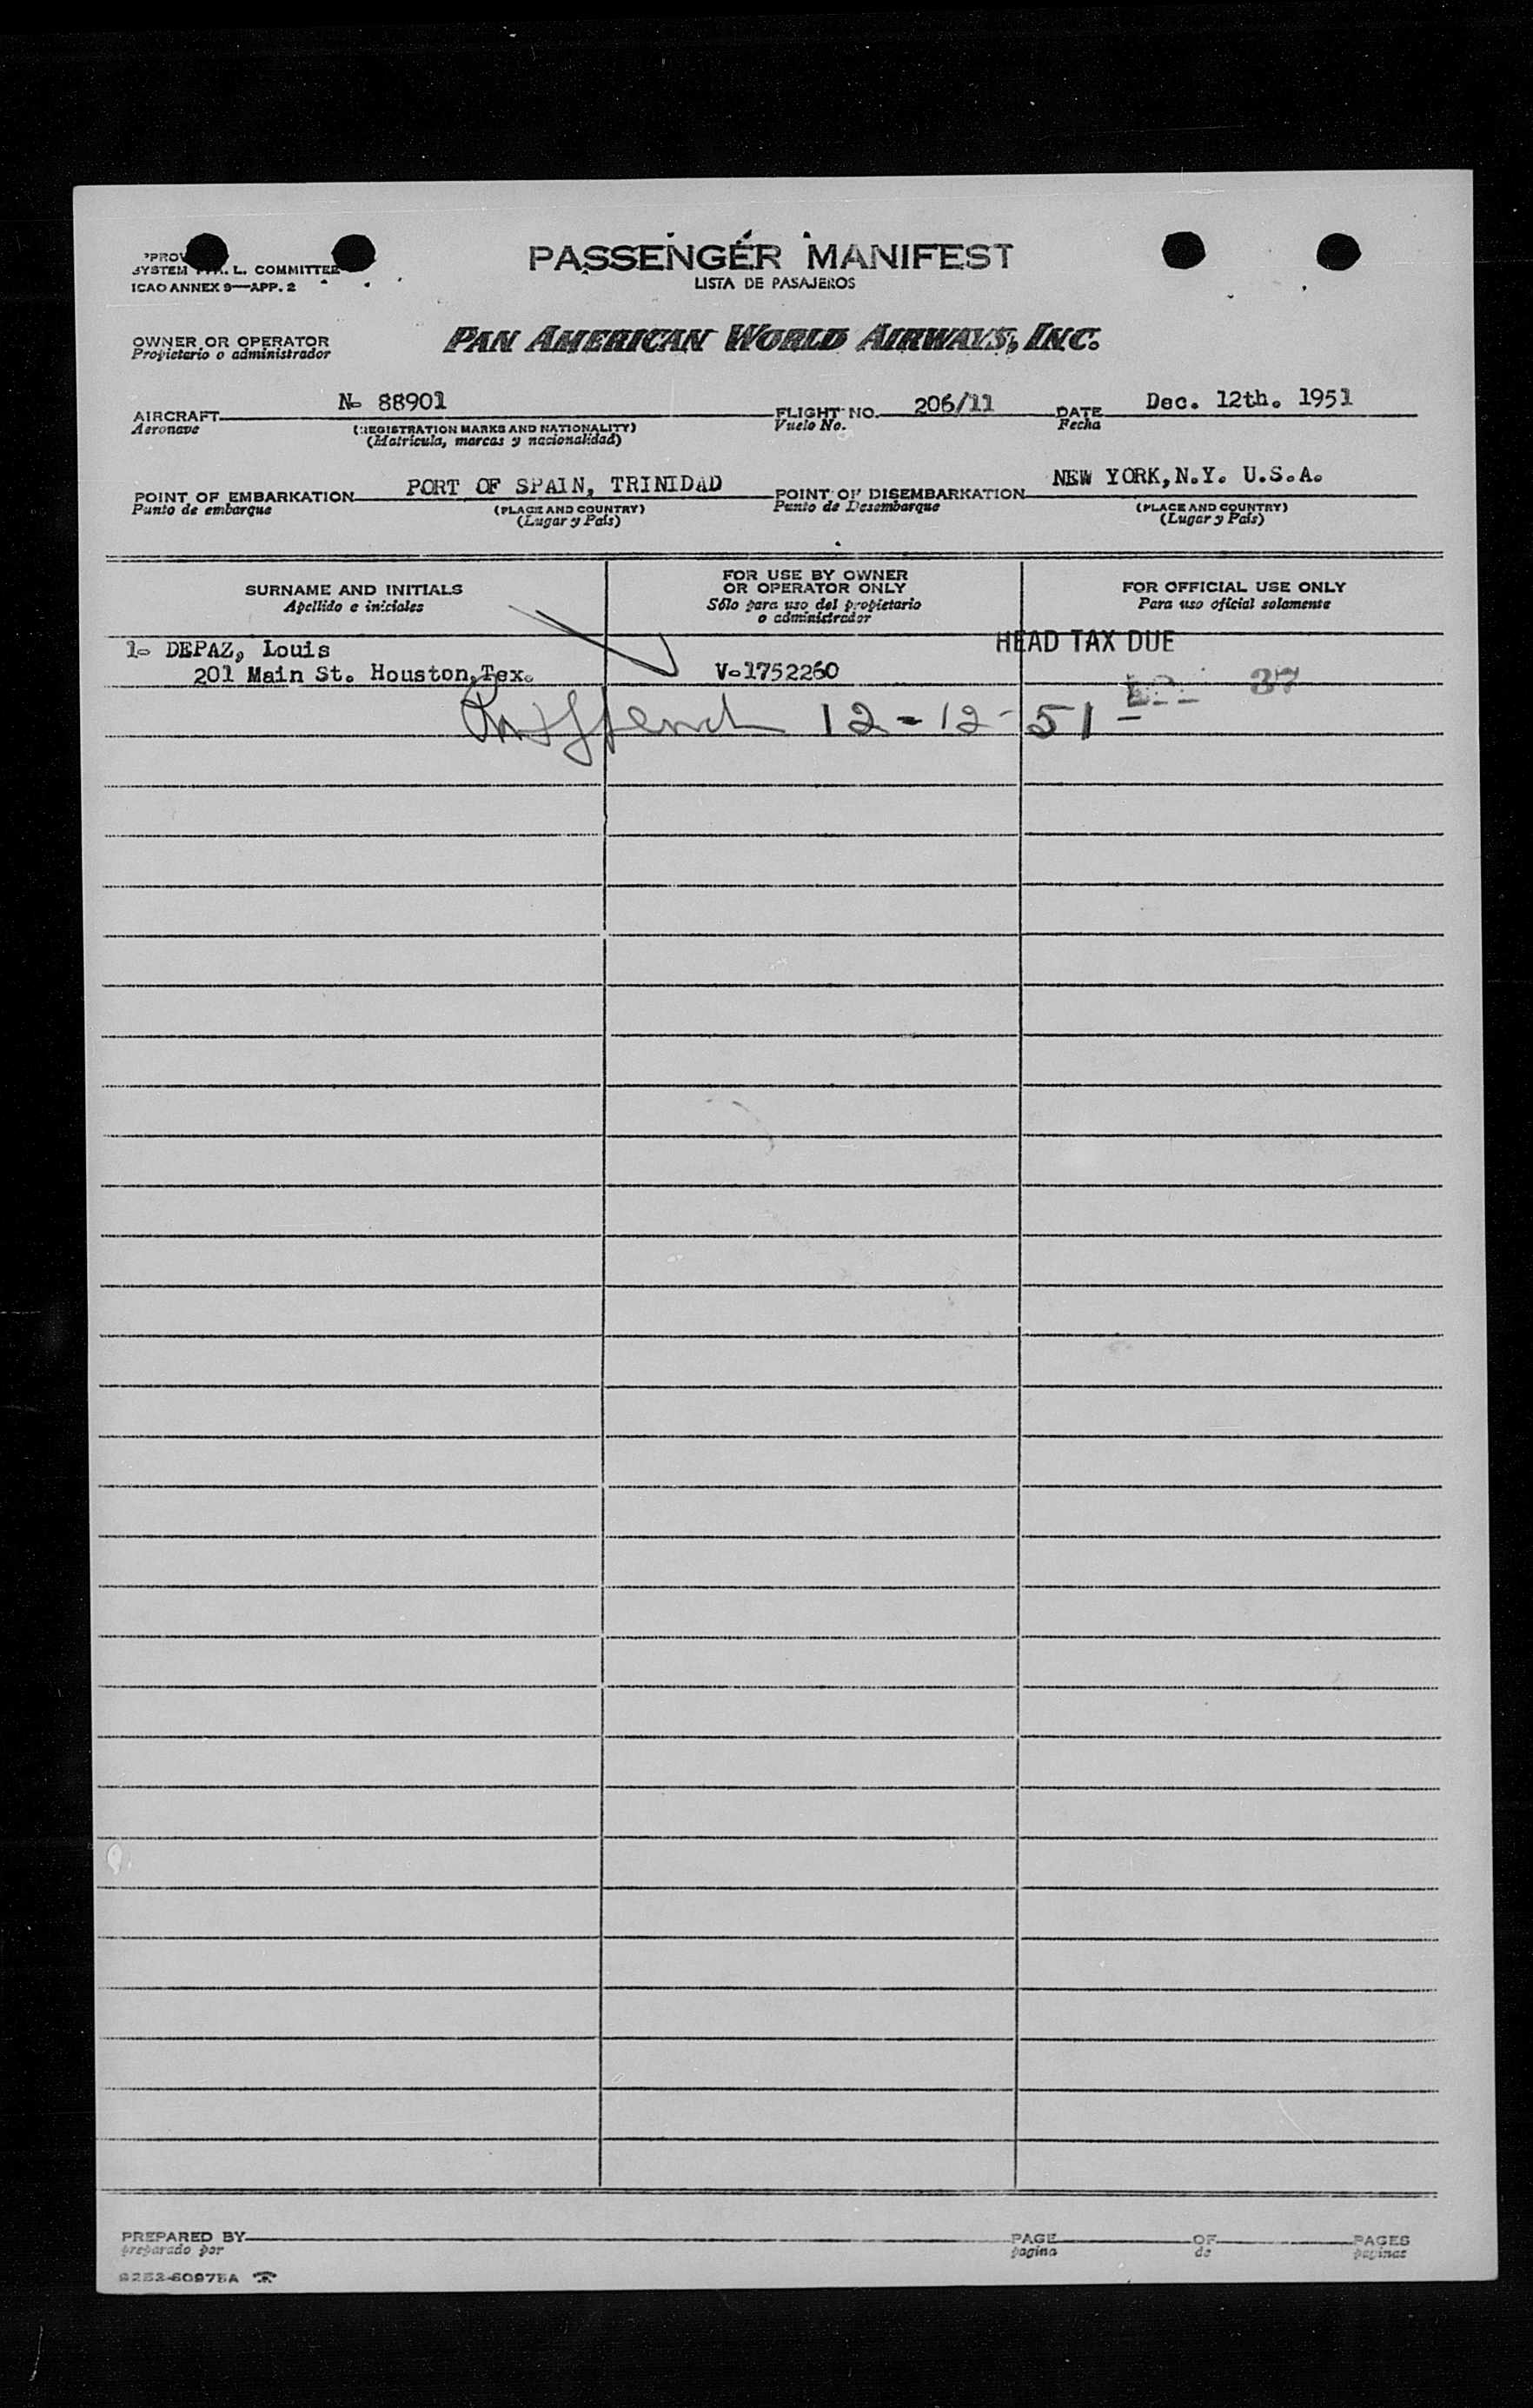 PASSENGER MANIFEST
LISTA DE PASAJEROS
SYSTEM L. COMMITTEE
ICAO ANNEX 9—APP. 2
OWNER OR OPERATOR
Propietario o administrador
PAN AMERICAN WORLD AIRWAYS, INC.
AIRCRAFT N- 88901 FLIGHT NO. 206/11 DATE Dec. 12th. 1951
Aeronave (REGISTRATION MARKS AND NATIONALITY) Vuelo No. Fecha
(Matricula, marcas y nacionalidad)
POINT OF EMBARKATION PORT OF SPAIN, TRINIDAD POINT OF DISEMBARKATION NEW YORK,N.Y. U.S.A.
Punto de embarque (PLACE AND COUNTRY) Punto de Desembarque (PLACE AND COUNTRY)
(Lugar y País) (Lugar y País)
SURNAME AND INITIALS
Apellido e iniciales
FOR USE BY OWNER
OR OPERATOR ONLY
Sólo para uso del propietario
o administrador
FOR OFFICIAL USE ONLY
Para uso oficial solamente
1- DEPAZ, Louis HEAD TAX DUE
201 Main St. Houston,Tex. V-1752260
37
12-12-51
PREPARED BY PAGE OF PAGES
preparado por pagina de paginas